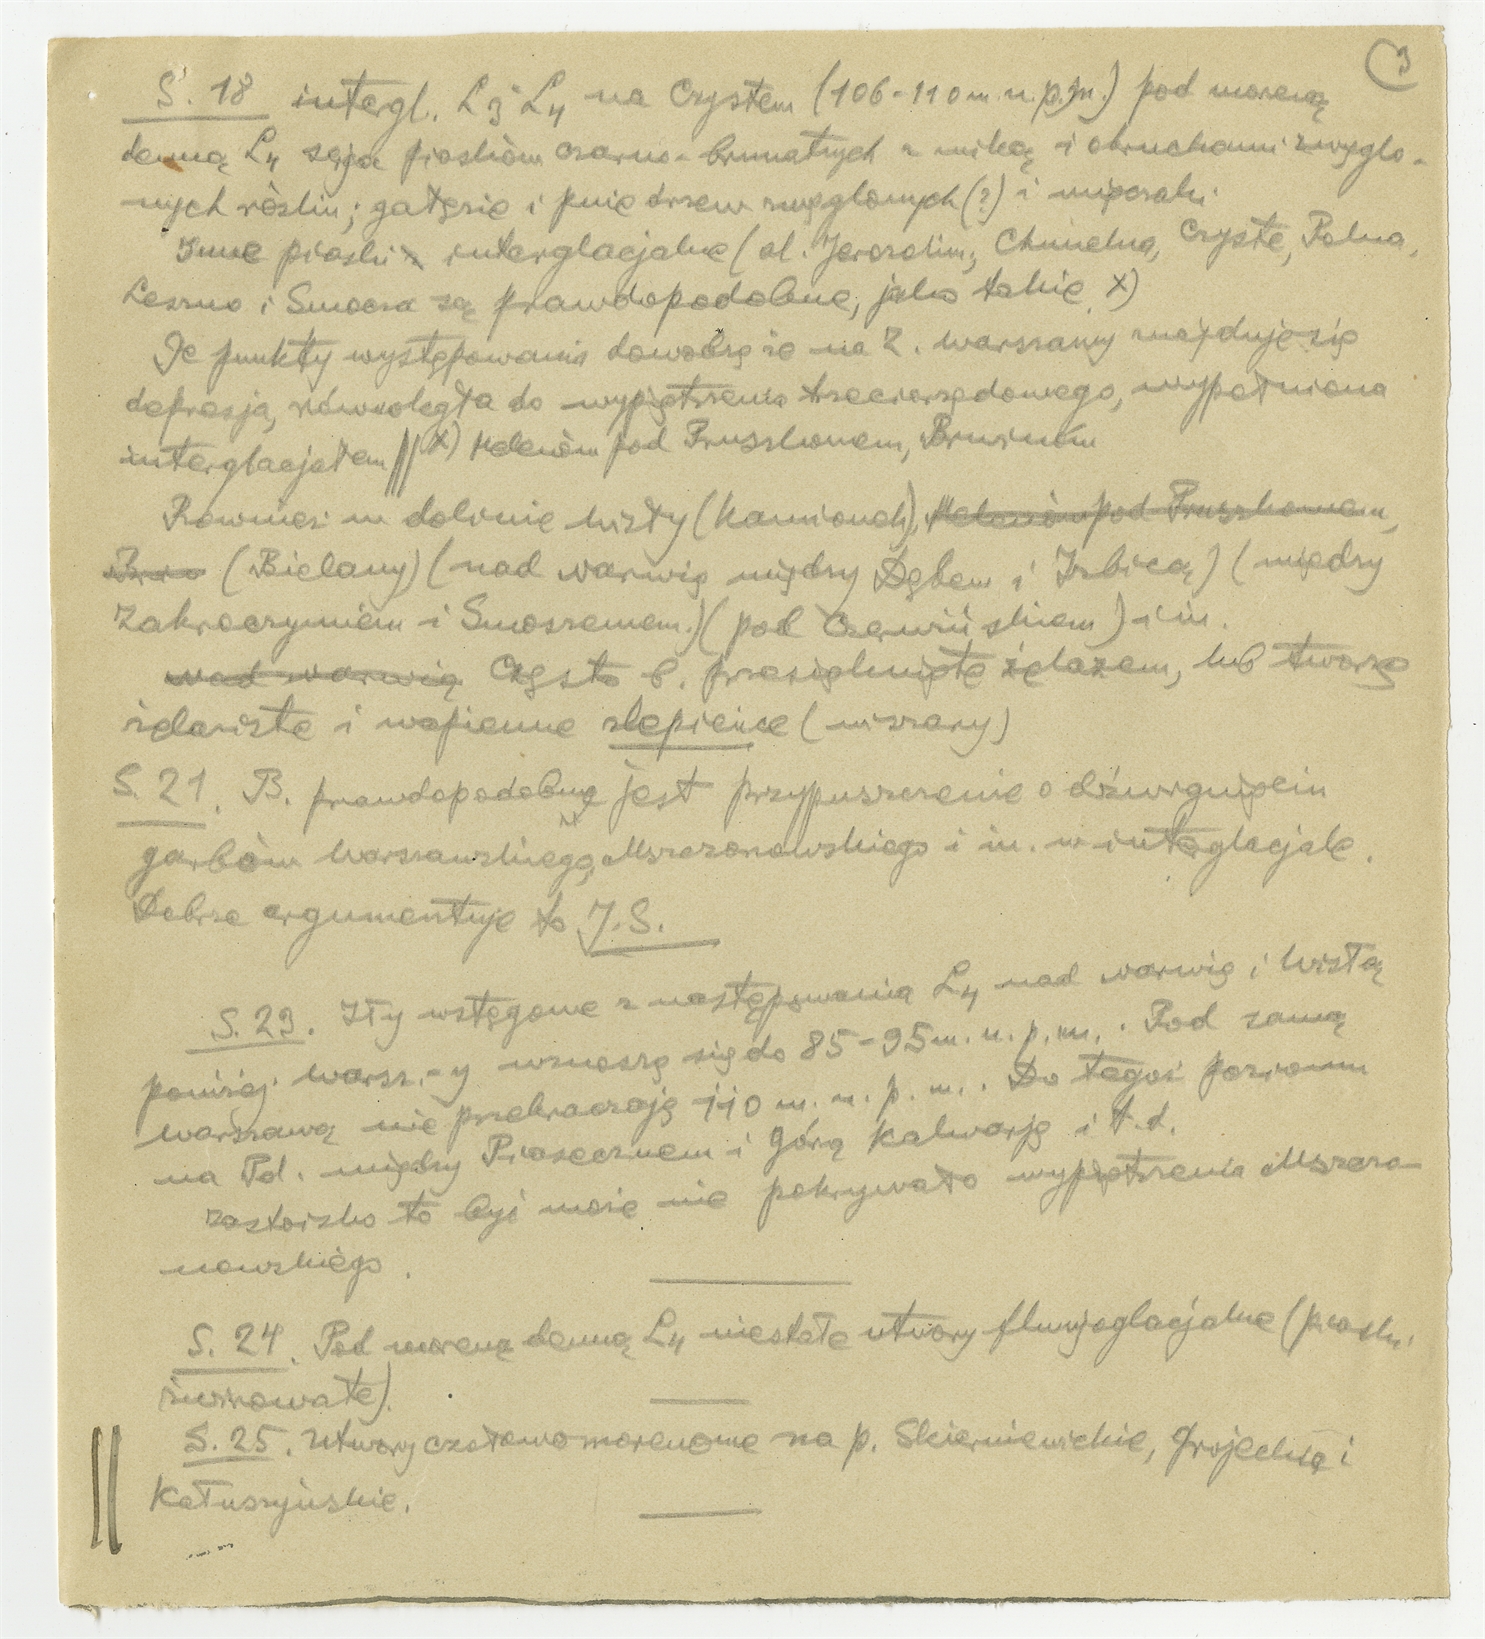 3
S. 18 intergl. L3-L4 na Czystem (106-110 m. n. p. m.) pod moreną
denną L4 serja piasków czarno-brunatnych z miką i okruchami zwęglo-
nych roślin; gałęzie i pnie drzew zwęglonych (?) i mięczaki.
Inne piaski interglacjalne (al. Jerozolim., Chmielna, Czyste, Polna,
Leszno i Smocza są prawdopodobne, jako takie x)
Te punkty występowania dowodzą że na Z. Warszawy znajduje się
depresja, równoległa do wypiętrzenia trzeciorzędowego, wypełniona
interglacjałem || x) Helenów pod Pruszkowem, Brwinów
Również w dolinie Wisły (Kamionek), Helenów pod Pruszkowem,
Brwi (Bielany) (nad Narwią między Dębem i Izbicą) (między
Zakroczymiem i Smoszewem.) (pod Czerwińskiem) i in.
nad Narwią Często b. przesiąknięte żelazem, lub tworzą
żelaziste i wapienne zlepieńce (wiszary)
S. 21. B. prawdopodobne jest przypuszczenie o dźwignięciu
garbów Warszawskiego, Mszczonowskiego i in. w interglacjale.
Dobrze argumentuje to J. S.
S. 23. Iły wstęgowe z następowania L4 nad Narwią i Wisłą
poniżej Warsz.-y wznoszą się do 85-95 m. n. p. m.. Pod samą
Warszawą nie przekraczają 110 m. n. p. m.. Do tegoż poziomu
na Pd. między Piasecznem i Górą Kalwarją i t. d.
Zastoisko to być może nie pokrywało wypiętrzenia Mszczo-
nowskiego.
S. 24. Pod moreną denną L4 niestałe utwory fluwjoglacjalne (piaski
żwirowate).
S. 25. Utwory czołowomorenowe na p. Skierniewickie, Grojeckie i
Kałuszyńskie.